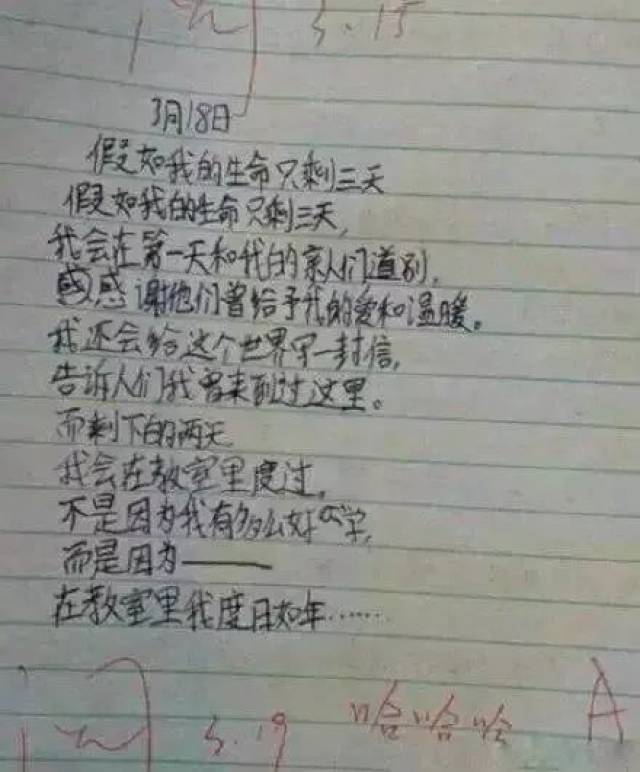 阅 3.15
3月18日
假如我的生命只剩三天
假如我的生命只剩三天,
我会在第一天和我的亲人们道别,
感感谢他们曾给予我的爱和温暖。
我还会给这个世界写一封信,
告诉人们我曾来到过这里。
而剩下的两天
我会在教室里度过,
不是因为我有多么好学,
而是因为——
在教室里我度日如年……
阅 3.19 哈哈哈 A